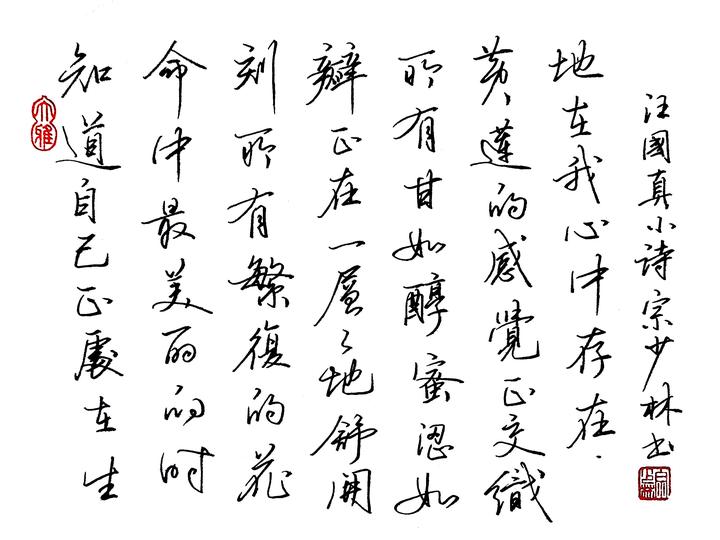 知道自己正處在生
命中最美丽的时
刻所有繁復的花
瓣正在一層々地舒開
所有甘如醇蜜涩如
黄蓮的感覺正交織
地在我心中存在.
汪國真小诗宗少林书